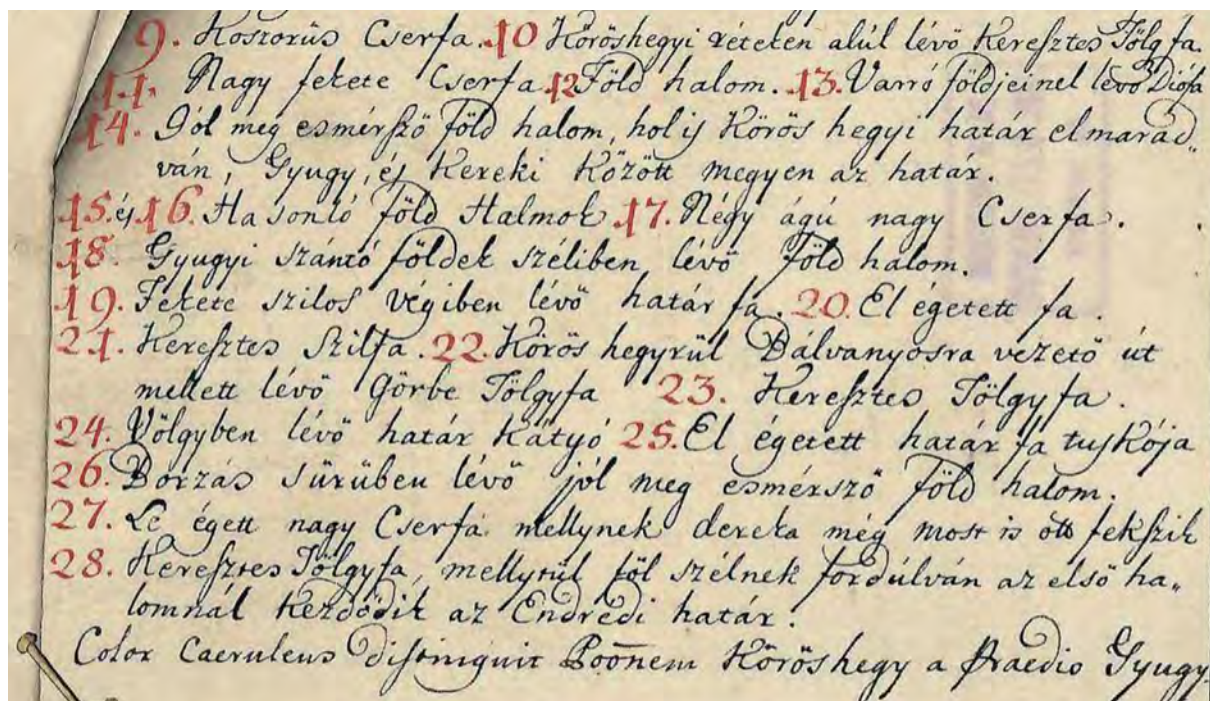 9. Koszorús Cserfa. 10 Köröshegyi réteken alúl lévö Keresztes Tölg fa.
11. Nagy fekete Cserfa 12 Föld halom. 13. Varró földjeinel lévö Diófa
14. Jól meg esmérszö föld halom, holis Körös hegyi határ elmarad„
ván, Gyugy, és Kereki Között megyen az határ.
15. és 16. Hasonló föld Halmok 17. Négy ágú nagy Cserfa.
18. Gyugyi szántó földek széliben lévö Föld halom.
19. Fekete szilos végiben lévö határ fa. 20. El égetett fa.
21. Keresztes Szilfa. 22. Körös hegyrül Bálvanyosra vezetö út
mellett lévö Görbe Tölgyfa 23. Keresztes Tölgyfa.
24. Völgyben lévö határ Kátyó 25. El égetett határ fa tuskója
26. Borzás sürüben lévö jól meg esmérszö Föld halom.
27. Le égett nagy Cserfa mellynek dereka még most is ott fekszik
28. Keresztes Tölgyfa, mellytül föl szélnek fordúlván az elsö ha„
lomnál kezdödik az Endrédi határ.
Color Caeruleus distinguit Poōnem Köröshegy a Praedio Gyugy.